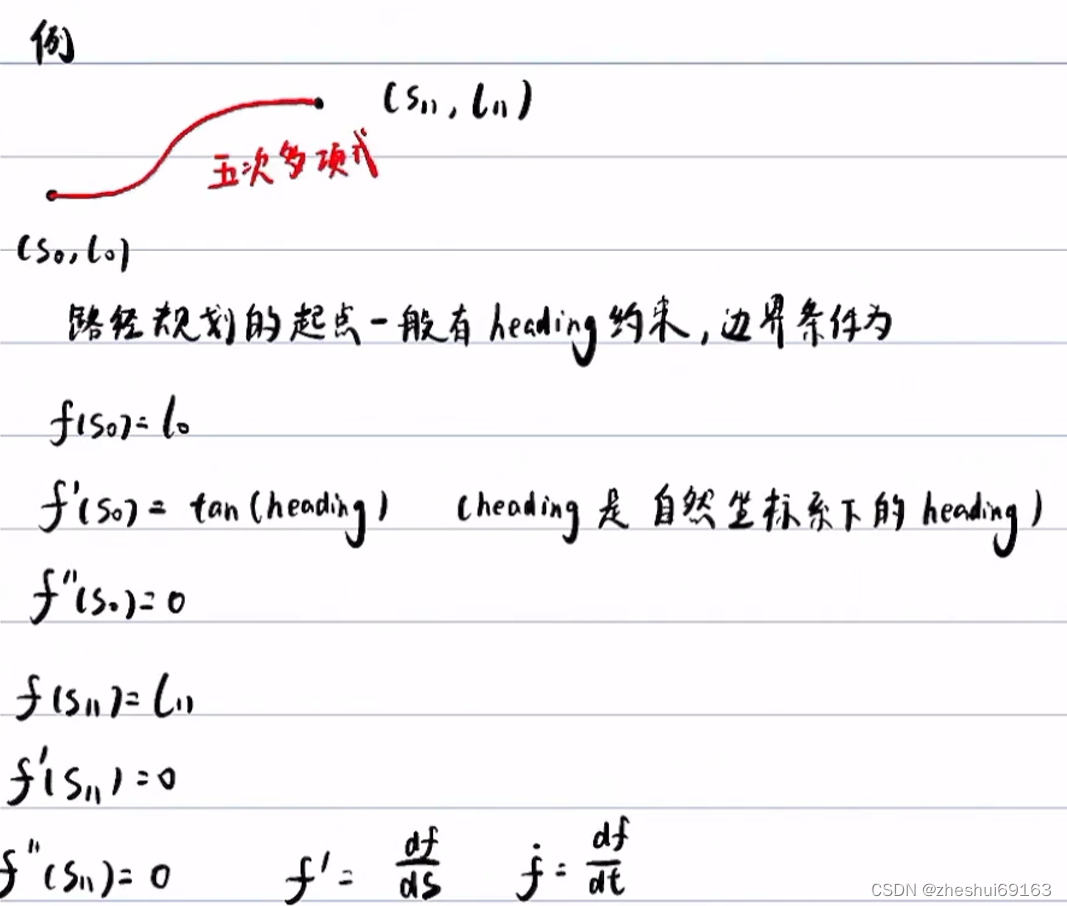 例
(s₁₁, l₁₁)
五次多项式
(s₀, l₀)
路径规划的起点一般有heading约束,边界条件为
f(s₀)= l₀
f'(s₀) = tan(heading) (heading 是 自然坐标系下的 heading)
f''(s₀)=0
f(s₁₁)= l₁₁
f'(s₁₁)=0
f''(s₁₁)=0 f' = df/ds ḟ = df/dt
CSDN @zheshui69163